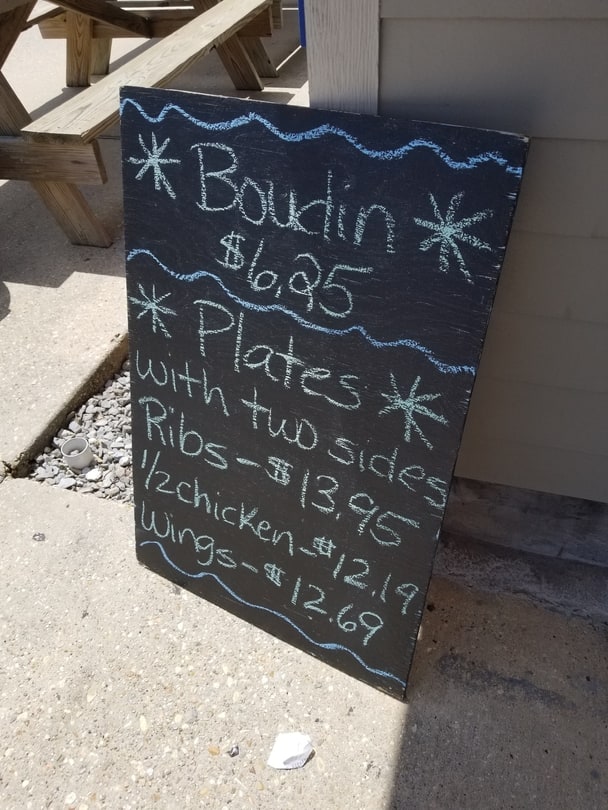 Boudin
$6.95
Plates
with two sides
Ribs - $13.95
1/2 chicken - $12.19
Wings - $12.69